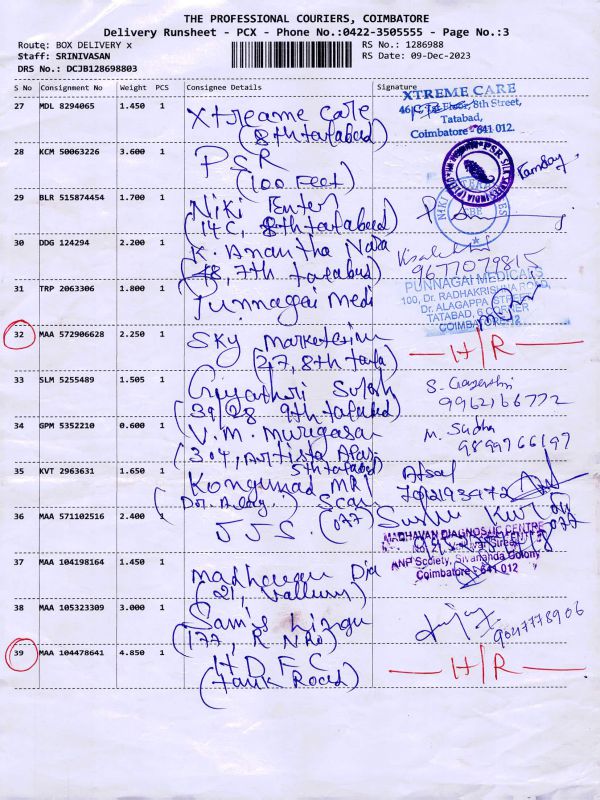 THE PROFESSIONAL COURIERS, COIMBATORE
Delivery Runsheet - PCX - Phone No.:0422-3505555 - Page No.:3
Route: BOX DELIVERY x RS No.: 1286988
Staff: SRINIVASAN RS Date: 09-Dec-2023
DRS No.: DCJB128698803
S No Consignment No Weight PCS Consignee Details Signature
27 MDL 8294065 1.450 1 Xtreame Care XTREME CARE
(8th tatabad) 8th Street,
Tatabad,
Coimbatore - 641 012.
28 KCM 50063226 3.600 1 PSR
(100 Feet)
29 BLR 515874454 1.700 1 Niki Enter
(14 C, 8th tatabad)
30 DDG 124294 2.200 1 K. Anantha Nara
(48, 7th tatabad) 9677079815
31 TRP 2063306 1.800 1 Punnagai Medi PUNNAGAI MEDICALS
100, Dr. RADHAKRISHNA ROAD,
Dr. ALAGAPPA STREET
TATABAD, 6 CORNER
32 MAA 572906628 2.250 1 Sky Marketing H/R
(27, 8th tata)
33 SLM 5255489 1.505 1 Gayathri Suresh S. Gayathri
(39/28 9th tatabad) 9962166772
34 GPM 5352210 0.600 1 V.M. Murugasan M. Sudha
(304, Artista Apar. 9899766197
5th tatabad)
35 KVT 2963631 1.650 1 Kongunad MRI Afsal
Scan
36 MAA 571102516 2.400 1 JJS (077)
MADHAVAN DIAGNOSTIC CENTRE
37 MAA 104198164 1.450 1 Madhavan Dia ANP Society, Sivananda Colony
(21, Valluvar) Coimbatore - 641 012
38 MAA 105323309 3.000 1 Sam's Lingu
(177, R N Ro) 9047778906
39 MAA 104478641 4.850 1 HDFC H/R
(tank Road)